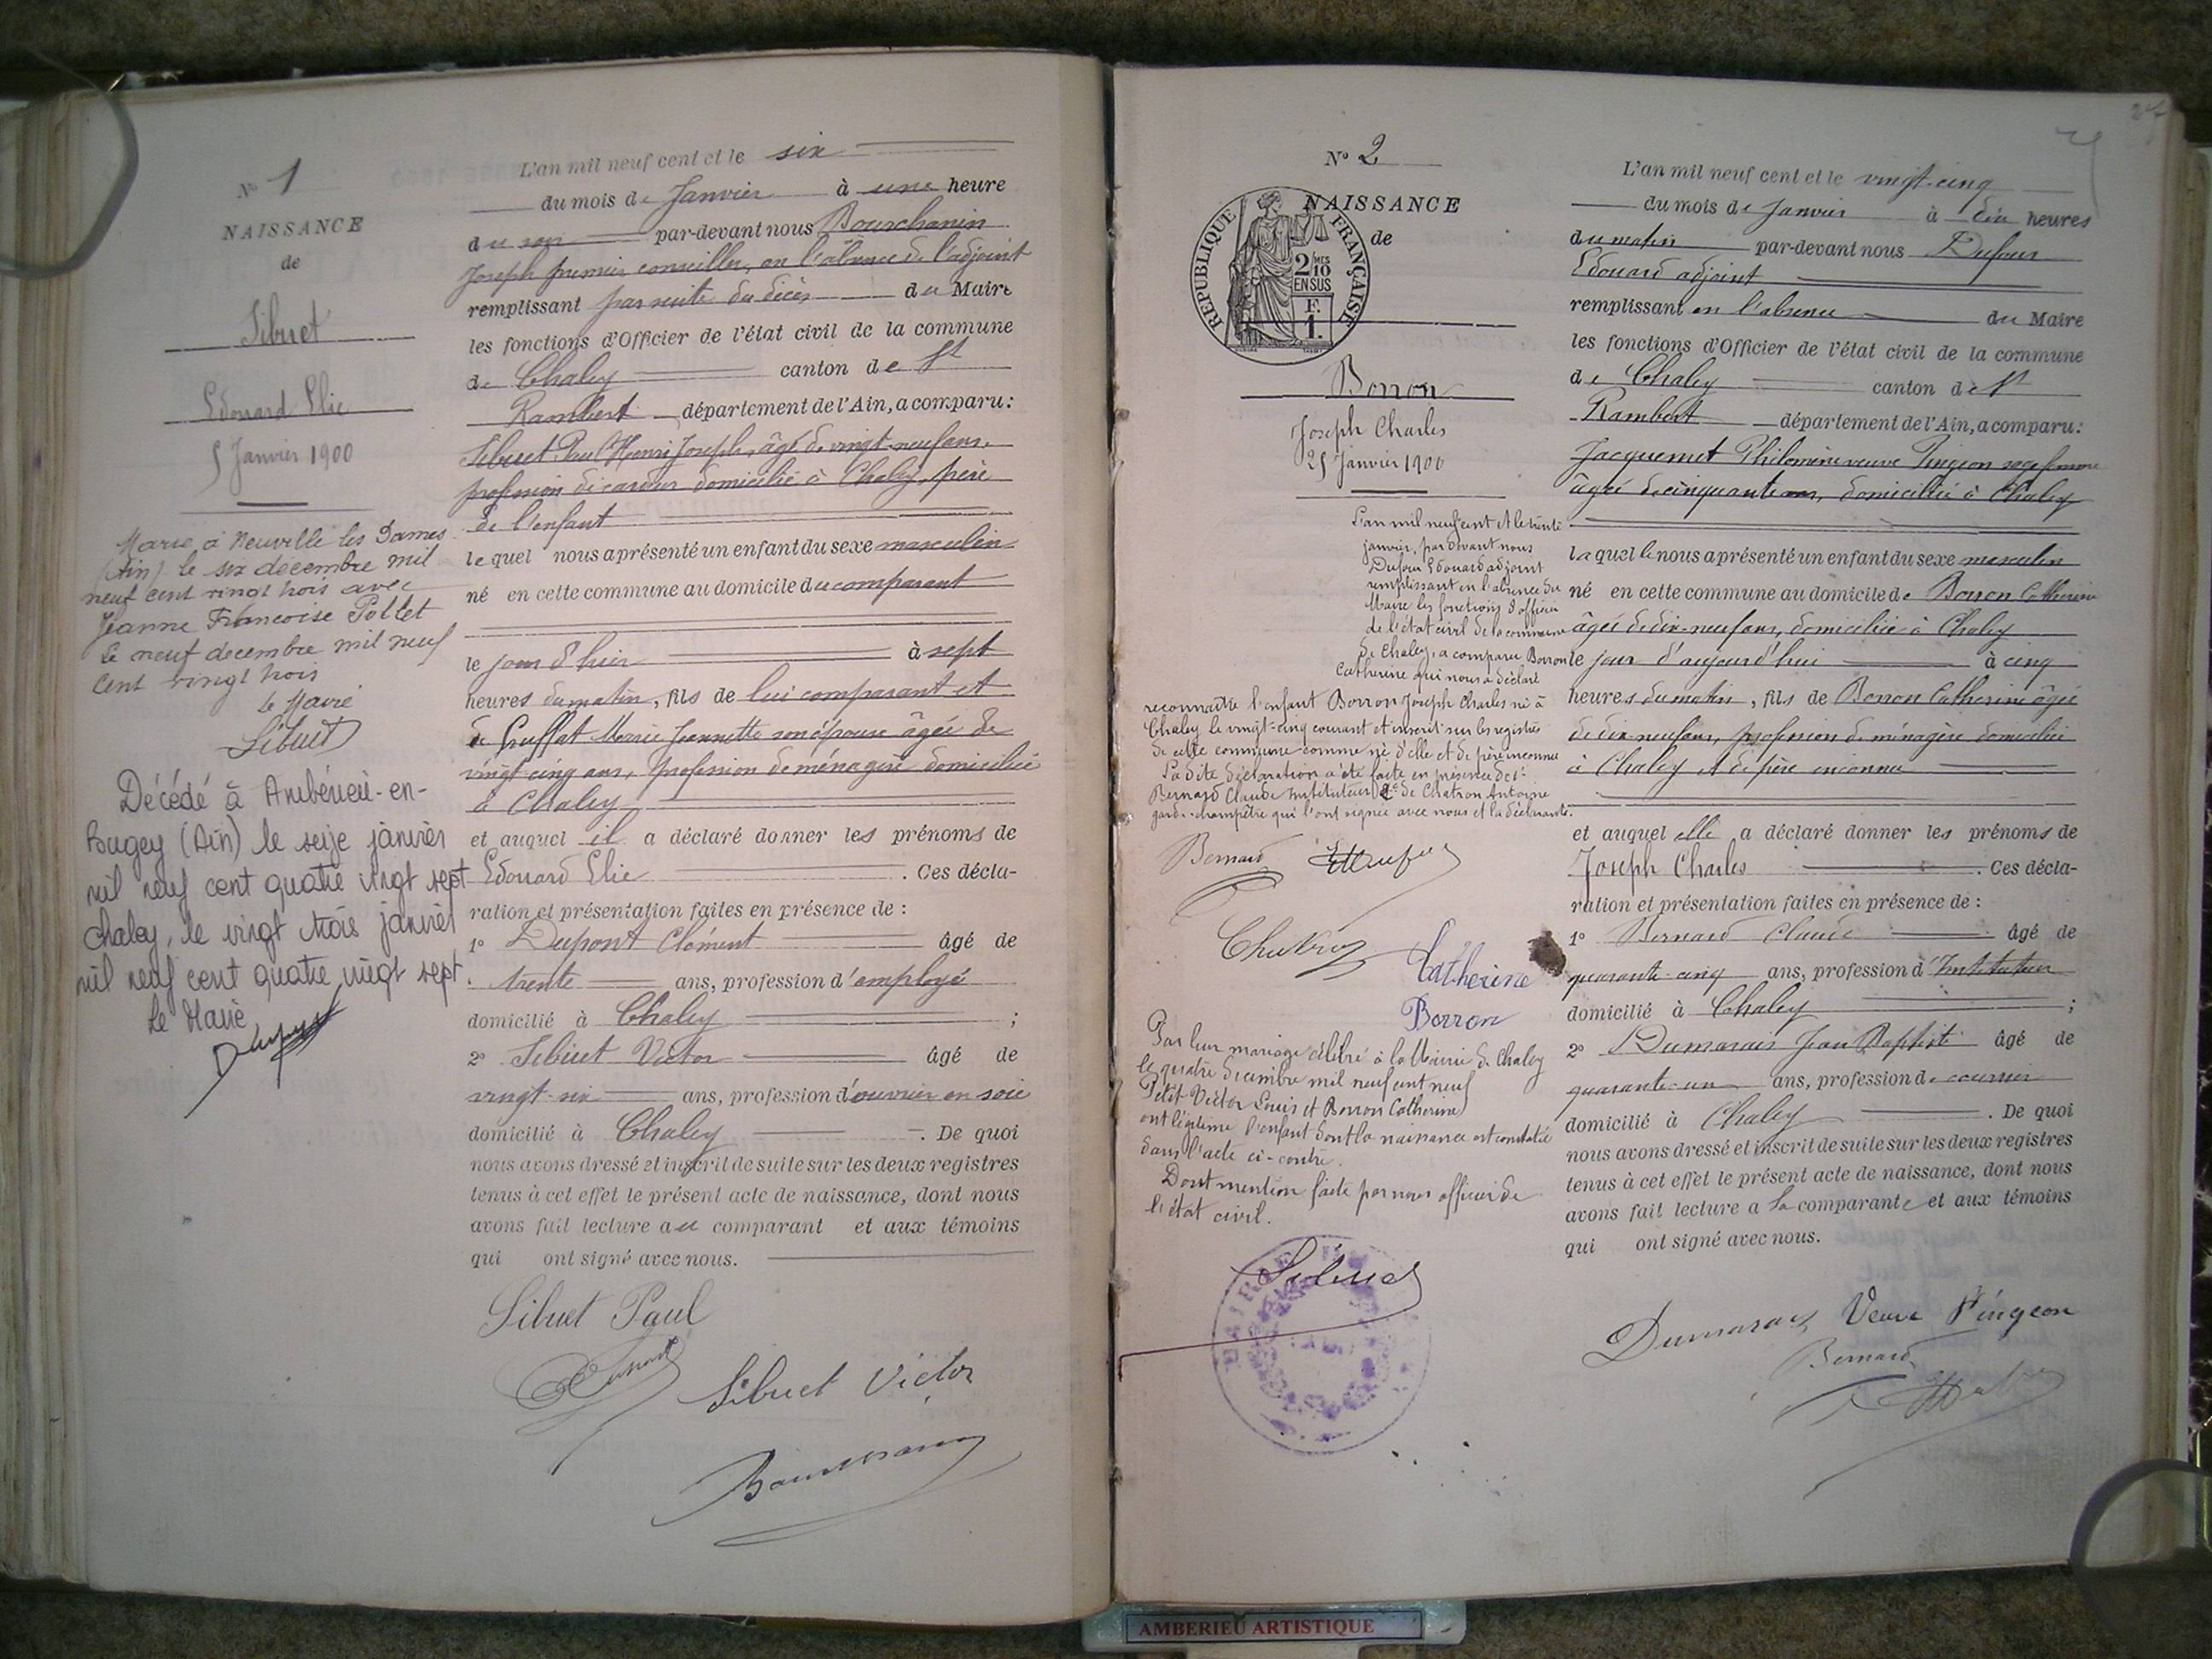 N° 1
NAISSANCE
de
Sibuet
Edouard Elie
5 Janvier 1900
Marié à Neuville les Dames
(Ain) le six decembre mil
neuf cent vingt trois avec
Jeanne Francoise Pollet
Le neuf decembre mil neuf
cent vingt trois
Le Maire
Sibuet
Décédé à Ambérieu-en-
Bugey (Ain) le seize janvier
mil neuf cent quatre vingt sept
Chaley, le vingt trois janvier
mil neuf cent quatre vingt sept.
Le Maire
L'an mil neuf cent et le six
du mois de Janvier à une heure
du soir par-devant nous Bourchanin
Joseph premier conseiller, en l'absence de l'adjoint
remplissant par suite du décès du Maire
les fonctions d'Officier de l'état civil de la commune
de Chaley canton de St
Rambert département de l'Ain, a comparu:
Sibuet Paul Henri Joseph, âgé de vingt-neuf ans,
profession de cardeur domicilié à Chaley, père
de l'enfant
lequel nous a présenté un enfant du sexe masculin
né en cette commune au domicile du comparant
le jour d'hier à sept
heures du matin, fils de lui comparant et
de Gruffat Marie Jeannette son épouse âgée de
vingt cinq ans, profession de ménagère domiciliée
à Chaley
et auquel il a déclaré donner les prénoms de
Edouard Elie . Ces décla-
ration et présentation faites en présence de :
1° Dupont Clément âgé de
trente ans, profession d'employé
domicilié à Chaley ;
2° Sibuet Victor âgé de
vingt-six ans, profession d'ouvrier en soie
domicilié à Chaley . De quoi
nous avons dressé et inscrit de suite sur les deux registres
tenus à cet effet le présent acte de naissance, dont nous
avons fait lecture au comparant et aux témoins
qui ont signé avec nous.
Sibuet Paul
Sibuet Victor
N° 2
NAISSANCE
de
REPUBLIQUE FRANÇAISE
2/10 MES
EN SUS
F.
1.
Borron
Joseph Charles
25 Janvier 1900
L'an mil neuf cent et le trente
janvier, par devant nous
Dufour Edouard adjoint
remplissant en l'absence du
Maire les fonctions d'officier
de l'état civil de la commune
de Chaley, a comparu Borron
Catherine qui nous a déclaré
reconnaitre l'enfant Borron Joseph Charles né à
Chaley le vingt-cinq courant et inscrit sur les registres
de cette commune comme né d'elle et de père inconnu
La dite déclaration a été faite en présence de 1°
Bernard Claude Instituteur 2° de Chatron Antoine
garde-champêtre qui l'ont signée avec nous et la déclarante.
Bernard
Catherine
Borron
Par leur mariage célébré à la Mairie de Chaley
le quatre Décembre mil neuf cent neuf
Petit Victor Louis et Borron Catherine
ont légitimé l'enfant dont la naissance est constatée
dans l'acte ci-contre.
Dont mention faite par nous officier de
l'état civil.
Sibuet
MAIRIE
L'an mil neuf cent et le vingt-cinq
du mois de Janvier à dix heures
du matin par-devant nous Dufour
Edouard adjoint
remplissant en l'absence du Maire
les fonctions d'Officier de l'état civil de la commune
de Chaley canton de St
Rambert département de l'Ain, a comparu:
Jacquemet Philomène veuve Pingeon sage femme
âgée de cinquante ans, domiciliée à Chaley
laquelle nous a présenté un enfant du sexe masculin
né en cette commune au domicile de Borron Catherine
âgée de dix-neuf ans, domiciliée à Chaley
le jour d'aujourd'hui à cinq
heures du matin, fils de Borron Catherine âgée
de dix-neuf ans, profession de ménagère domiciliée
à Chaley et de père inconnu
et auquel elle a déclaré donner les prénoms de
Joseph Charles . Ces décla-
ration et présentation faites en présence de :
1° Bernard Claude âgé de
quarante-cinq ans, profession d'Instituteur
domicilié à Chaley ;
2° Dumarais Jean Baptiste âgé de
quarante-un ans, profession de courrier
domicilié à Chaley . De quoi
nous avons dressé et inscrit de suite sur les deux registres
tenus à cet effet le présent acte de naissance, dont nous
avons fait lecture a la comparante et aux témoins
qui ont signé avec nous.
Dumarais Veuve Pingeon
Bernard
AMBERIEU ARTISTIQUE